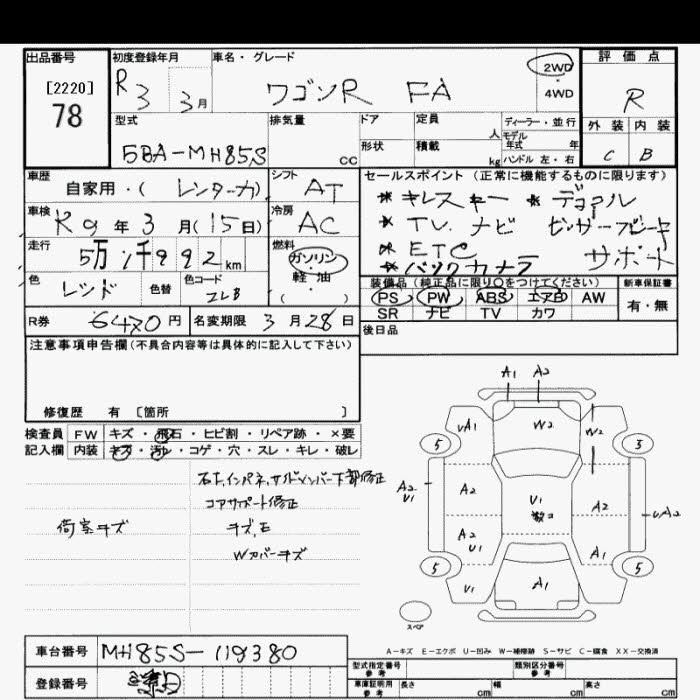 出品番号 初度登録年月 車名・グレード 評価点
[2220] R3 3月 ワゴンR FA 2WD ・ 4WD R
78
型式 排気量 ドア 定員 ディーラー・並行 外装 内装
人 モデル年式 年
5BA-MH85S cc 形状 積載 kg ハンドル 左・右 C B
車歴 シフト セールスポイント (正常に機能するものに限ります)
自家用・( レンタカー ) AT * キーレスキー * デュアル
車検 冷房 * TV. ナビ センサーブレーキ
R9年3月(15日) AC * ETC サポート
走行 燃料 * バックカメラ
5万1千992km ガソリン ・ 軽・油
色 色替 色コード ( ・ ) 装備品 (純正品に限り○をつけてください) 新車保証書
レッド PS PW ABS エアB AW 有・無
SR ナビ TV カワ
R券 6470円 名変期限 3月28日 後日品
注意事項申告欄(不具合内容等は具体的に記入して下さい)
修復歴 有 [箇所 ]
検査員 FW キズ・飛石・ヒビ割・リペア跡・×要
記入欄 内装 キズ・汚レ・コゲ・穴・スレ・キレ・破レ
右下インパネ,サイドメンバー下部修正
コアサポート修正
荷室キズ キズ,E
Wカバーキズ
A1 A2
UA1 W2 W2
5 3
A2 U1 A2 U1 A2 UA2
A2 U1 A1
5 5
U1 A1
スペア
A-キズ E-エクボ U-凹み W-補修跡 S-サビ C-腐食 XX-交換済
車台番号 MH85S-119380
型式指定番号 参考 類別区分番号 参考
登録番号 車庫証明用 参考 長さ cm 幅 cm 高さ cm